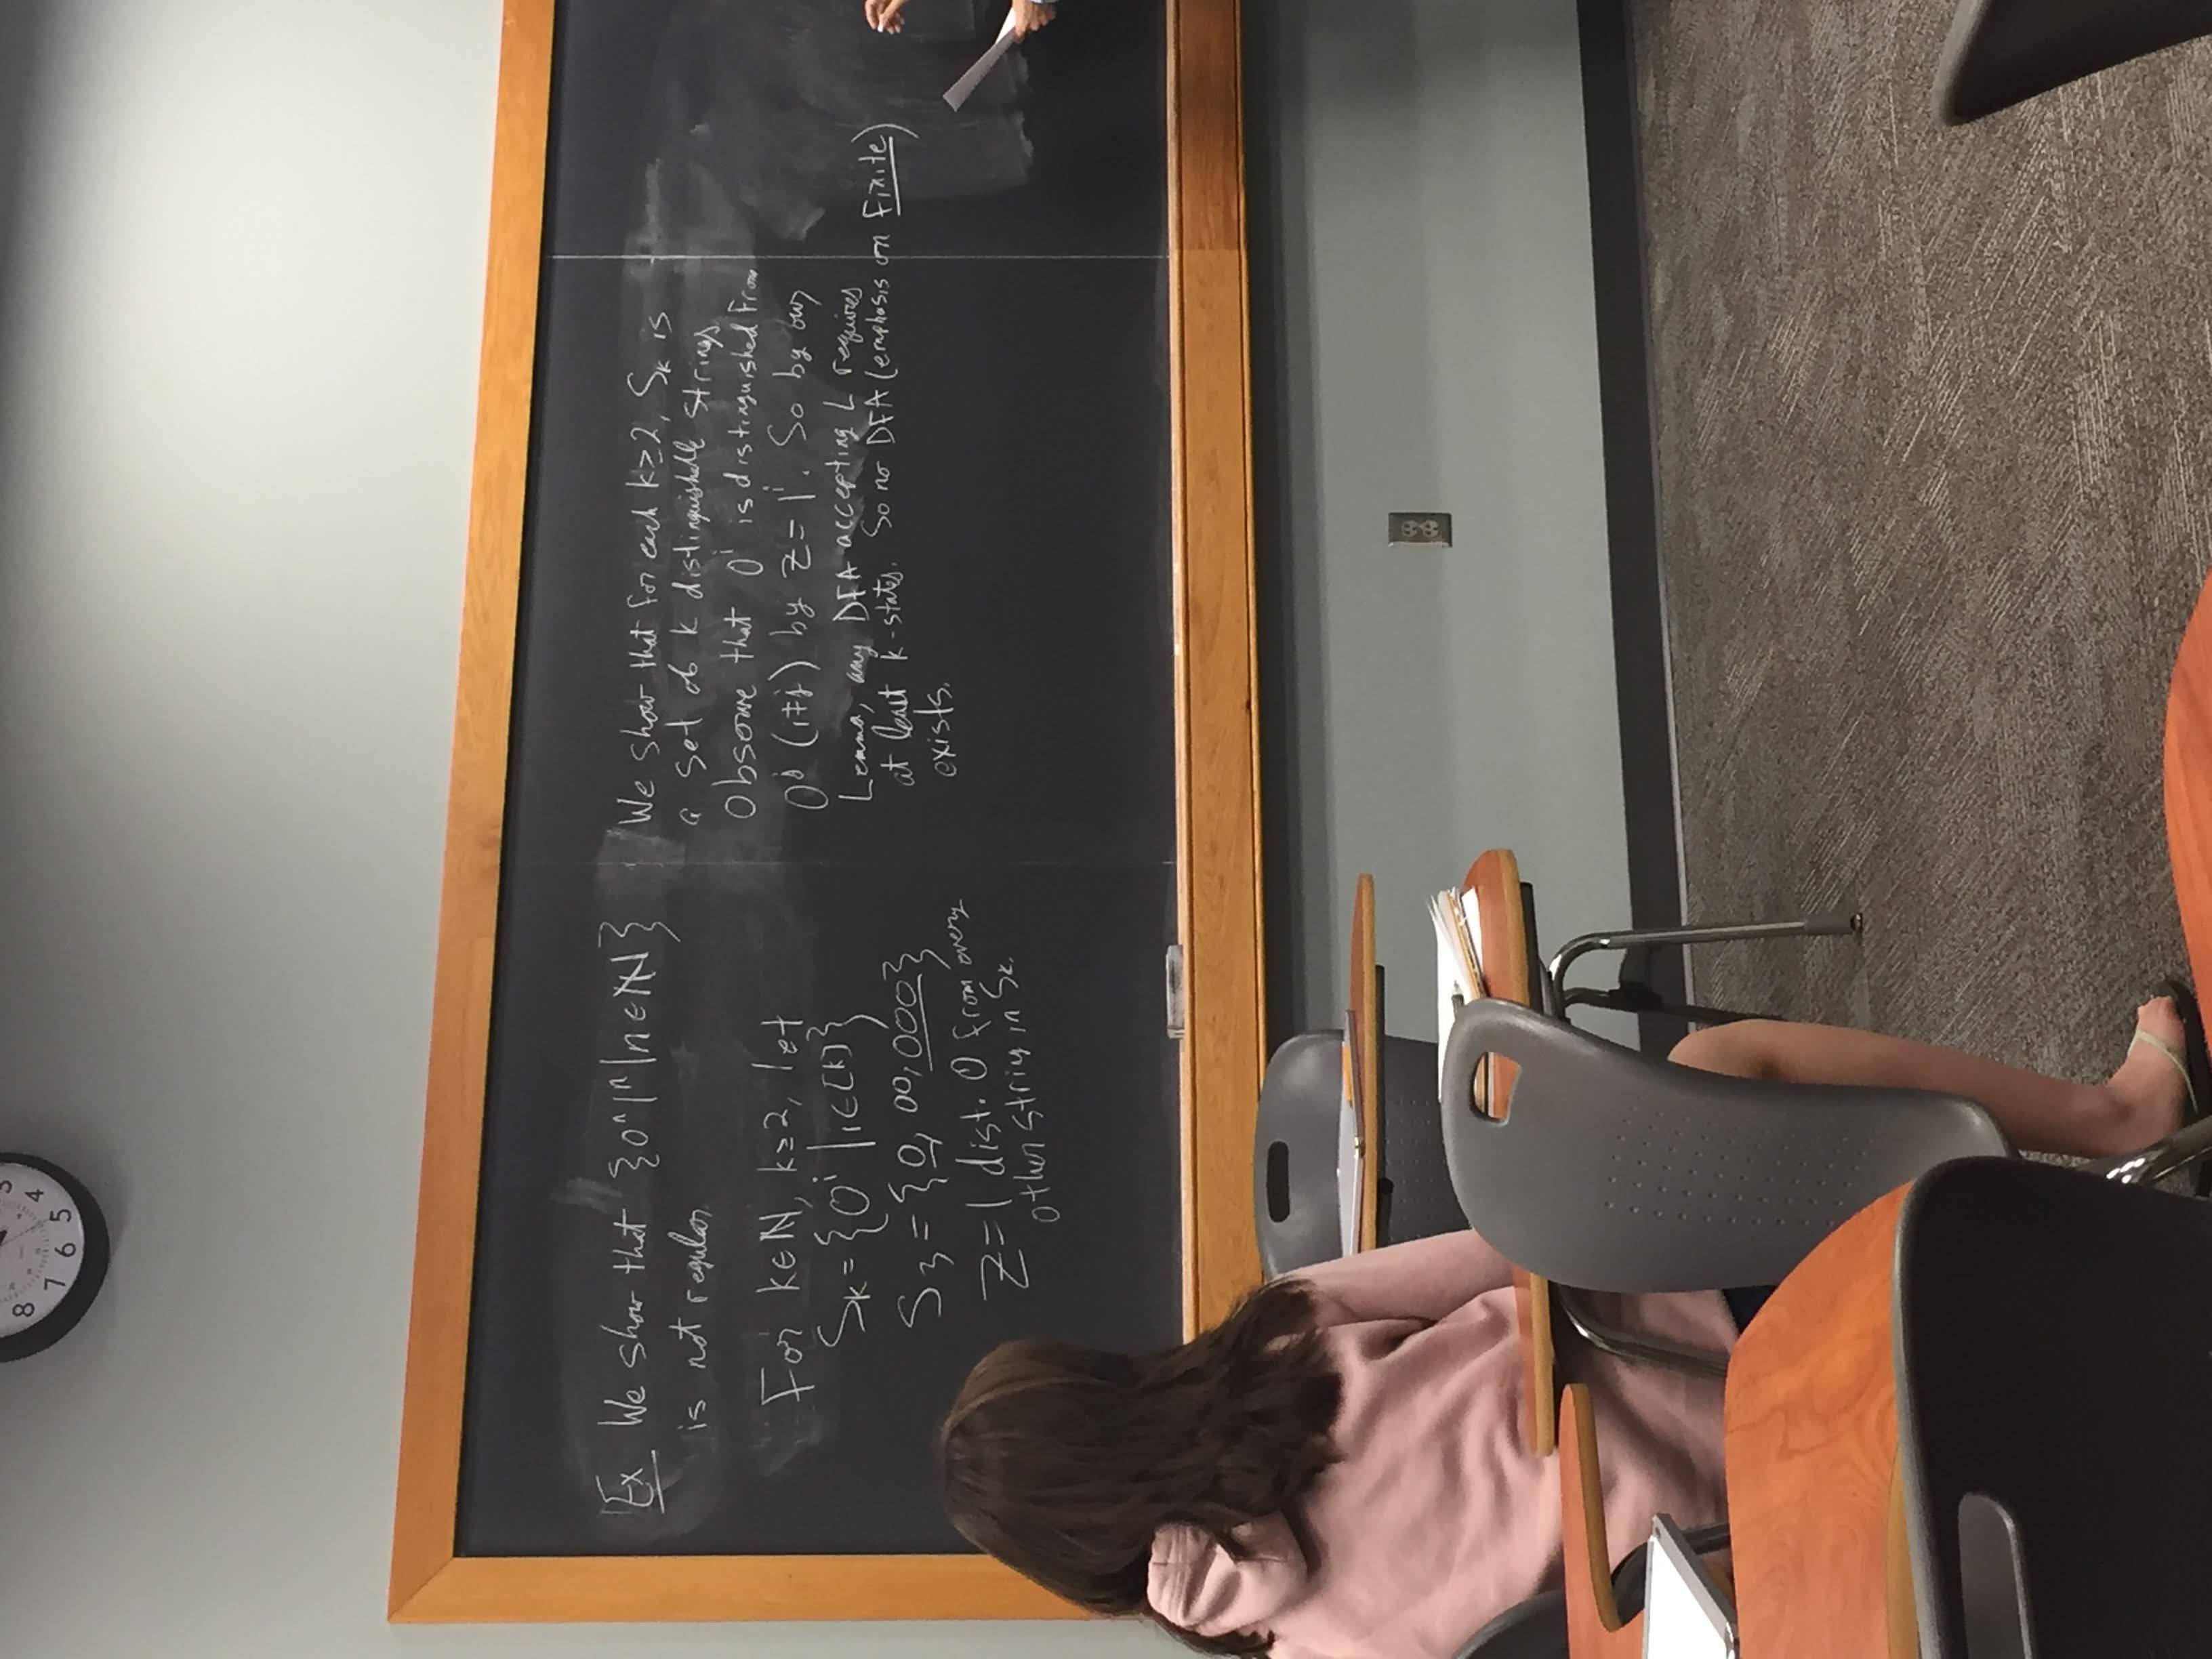 8 7 6 5 4 3
Ex We show that {0ⁿ1ⁿ|n∈ℕ}
is not regular
For k∈ℕ, k≥2, let
Sₖ={0ⁱ|i∈[k]}
S₃={0, 00, 000}
Z=1 dist. 0 from every
other string in Sₖ.
We show that for each k≥2, Sₖ is
a set of k distinguishable strings
Observe that 0ⁱ is distinguished from
0ʲ (i≠j) by z=1ⁱ. So by our
Lemma, any DFA accepting L requires
at least k-states. So no DFA (emphasis on Finite)
exists.